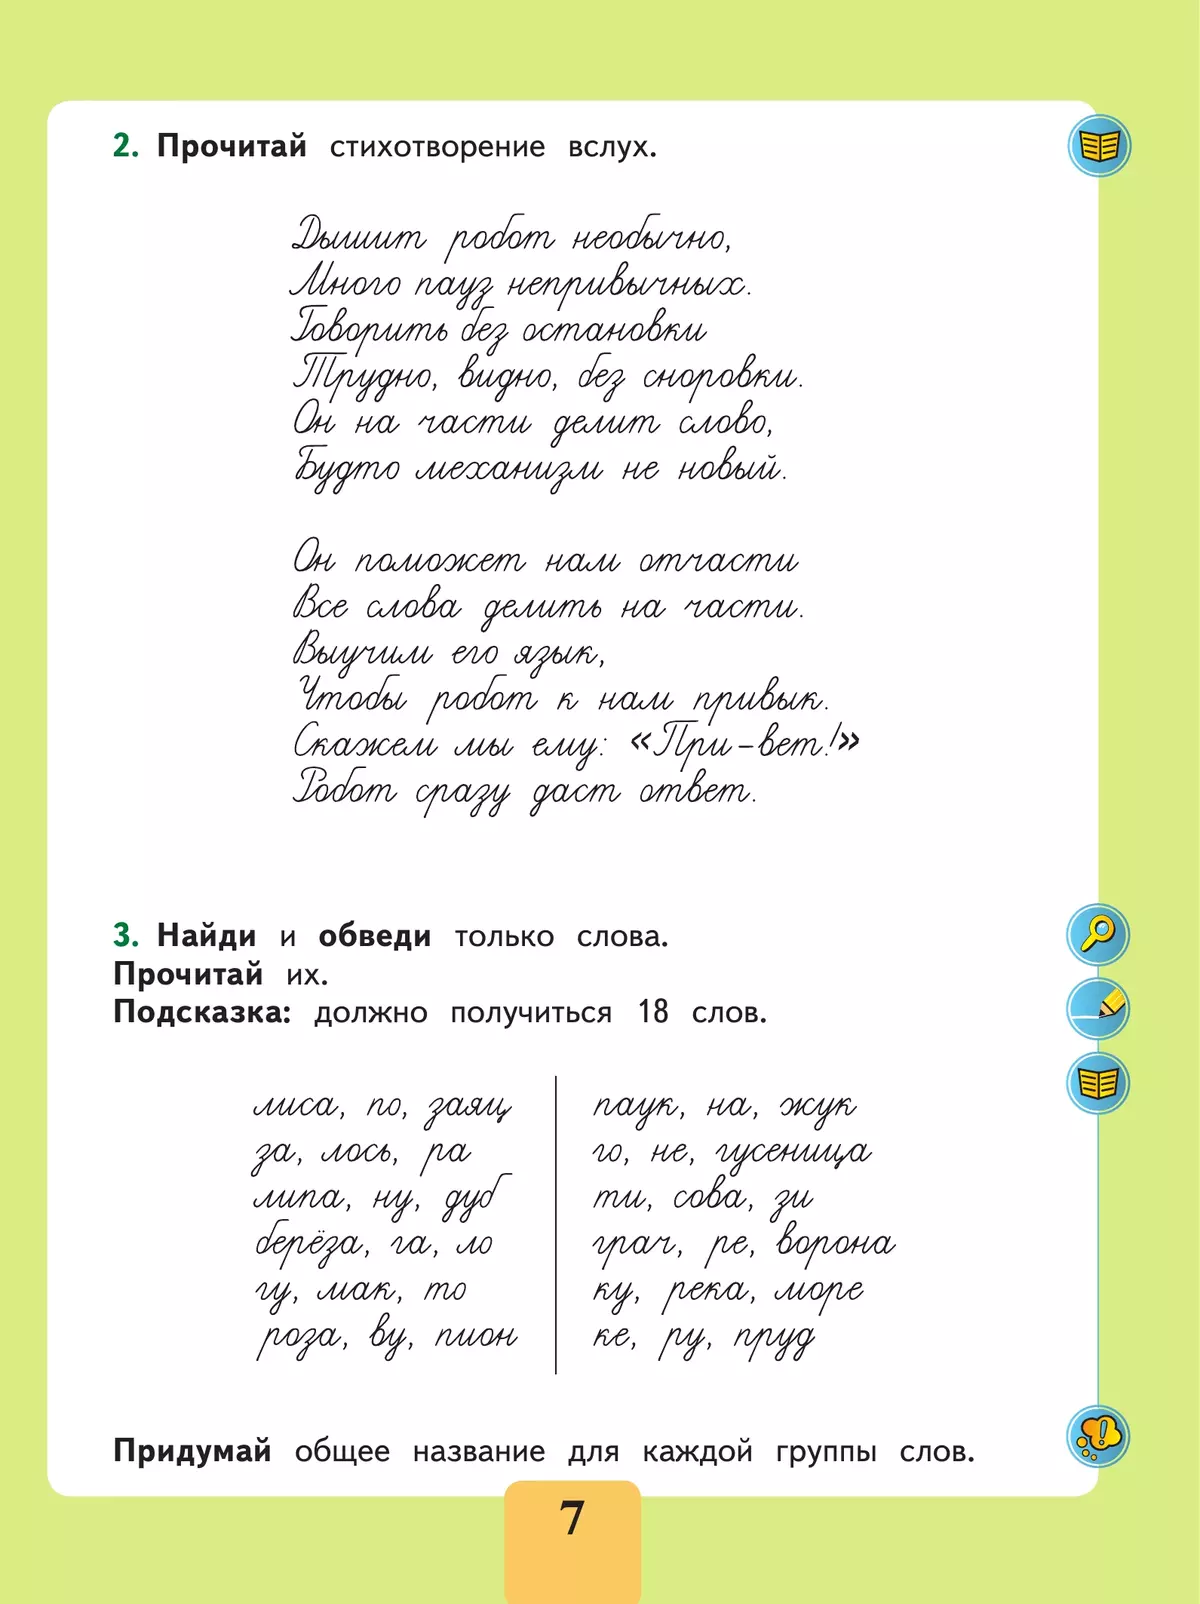 2. Прочитай стихотворение вслух.
Дышит робот необычно,
Много пауз непривычных.
Говорить без остановки
Трудно, видно, без сноровки.
Он на части делит слово,
Будто механизм не новый.
Он поможет нам отчасти
Все слова делить на части.
Выучим его язык,
Чтобы робот к нам привык.
Скажем мы ему: «При-вет!»
Робот сразу даст ответ.
3. Найди и обведи только слова.
Прочитай их.
Подсказка: должно получиться 18 слов.
лиса, по, заяц
за, лось, ра
липа, ну, дуб
берёза, га, ло
гу, мак, то
роза, ву, пион
паук, на, жук
го, не, гусеница
ти, сова, зи
грач, ре, ворона
ку, река, море
ке, ру, пруд
Придумай общее название для каждой группы слов.
7